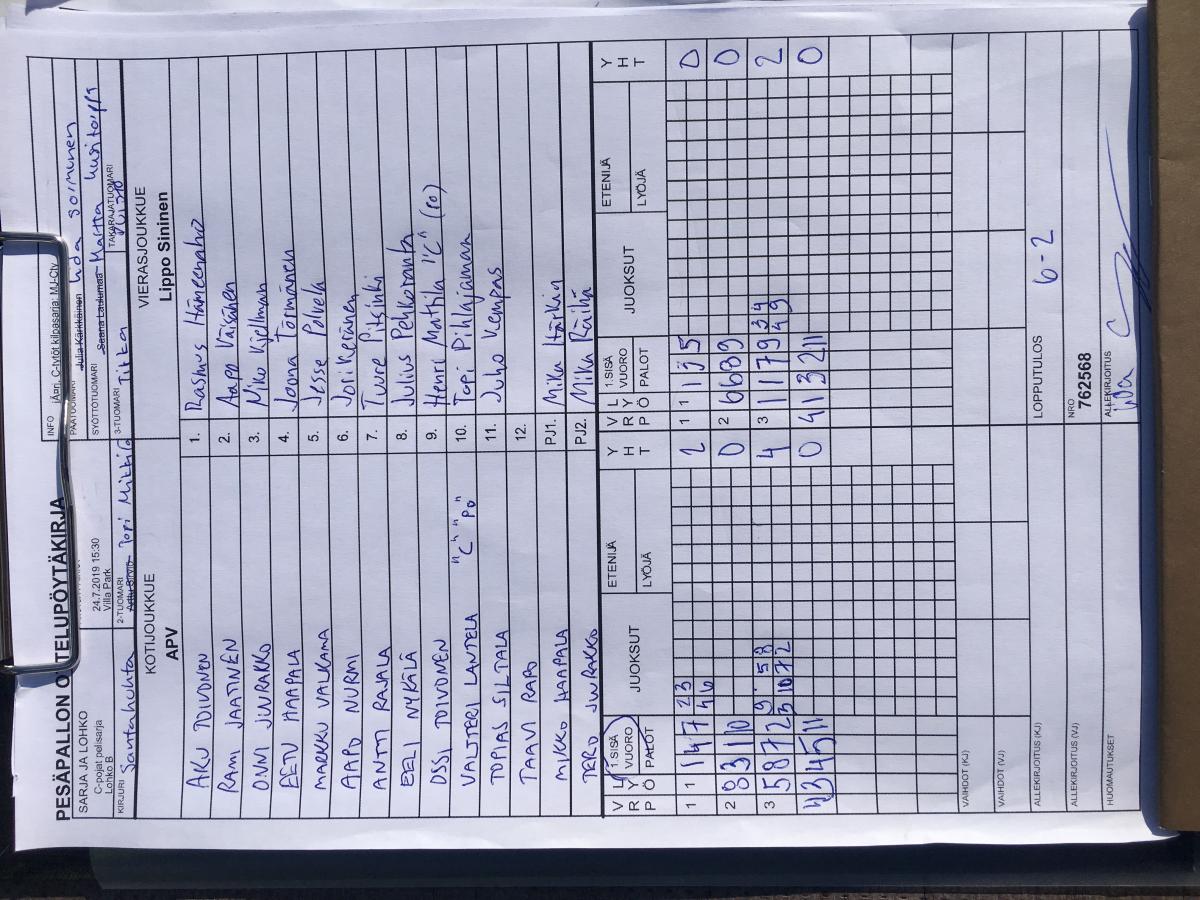 PESÄPALLON OTTELUPÖYTÄKIRJA
SARJA JA LOHKO
C-pojat pelisarja
Lohko B
24.7.2019 15:30
Villa Park
INFO
PÄÄTUOMARI Julia Kärkkäinen
SYÖTTÖTUOMARI Seana Laulumaa
KIRJURI Santahuhta
2-TUOMARI Topi
3-TUOMARI
TAKARAJATUOMARI
KOTIJOUKKUE
APV
VIERASJOUKKUE
Lippo Sininen
AKU TOIVONEN 1. Rasmus Hämeenaho
RAMI JAATINEN 2. Aapo Väisänen
ONNI JUURAKKO 3. Niko Kjellman
EETU HAAPALA 4. Joona Törmänen
MARKKU VALKAMA 5. Jesse Polvela
AAPO NURMI 6. Jori Keränen
ANTTI RAJALA 7. Tuure Pitsinki
EELI NYKÄLÄ 8. Julius Pehkoranta
OSSI TOIVONEN 9. Henri Mattila "C" (PO)
VALTTERI LANTELA "C" "PO" 10. Topi Pihlajamaa
TOPIAS SILTALA 11. Juho Kempas
TAAVI RAPO 12.
MIKKO HAAPALA PJ1. Mika Härkin
TERO JUURAKKO PJ2. Mika Räihä
V R P L Y Ö 1.SISÄ VUORO PALOT JUOKSUT ETENIJÄ LYÖJÄ Y H T V R P L Y Ö 1.SISÄ VUORO PALOT JUOKSUT ETENIJÄ LYÖJÄ Y H T
1 1 1 4 7 2 3 4 6 2 1 1 1 5 0
2 8 3 1 10 0 2 6 6 8 9 0
3 5 8 7 2 9 5 8 3 10 7 2 4 3 1 1 7 9 3 4 4 9 2
3 4 5 11 0 4 1 3 2 11 0
VAIHDOT (KJ)
VAIHDOT (VJ)
ALLEKIRJOITUS (KJ) LOPPUTULOS 6-2
ALLEKIRJOITUS (VJ) NRO 762568
HUOMAUTUKSET ALLEKIRJOITUS